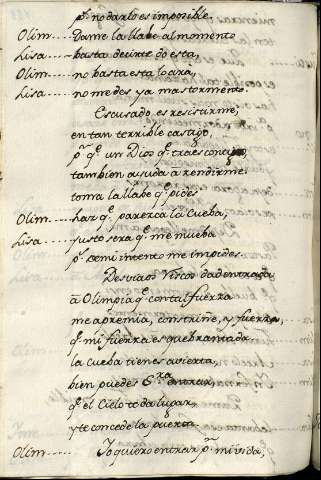 pʳ. no darlo es imposible.
Olim..... Dame la llabe al momento
Lisa..... basta decirte do esta,
Olim..... no basta esto
Lisa..... no me des ya mas tormento.
Escusado es resistirme,
en tan terrible castigo,
pʳ. qᵉ. un Dios qᵉ. traes contigo,
tambien aiuda a rendirme
toma la llabe qᵉ. pides
Olim..... haz qᵉ. parezca la Cueba,
Lisa..... justo sera qᵉ. me mueba
pˢ. de mi intento me impides
Desviaos Riscos dad entrada
a Olimpia qᵉ. con tal fuerza
me apremia, constriñe, y fuerza,
qᵉ. mi fuerza es quebrantada
la Cueba tienes avierta,
bien puedes Sʳᵃ. entrar,
qᵉ. el Cielo te da lugar,
y te concede la puerta
Olim..... Yo quiero entrar pʳ. mi vida,